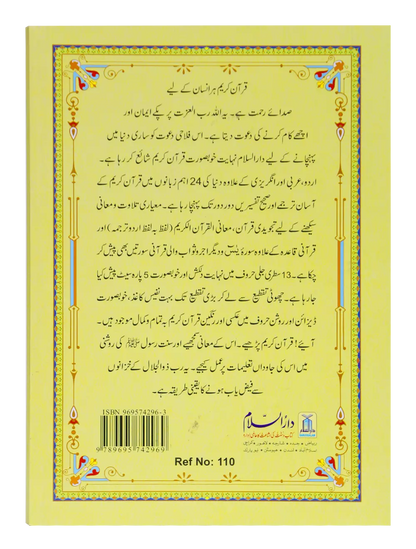 قرآن کریم ہر انسان کے لیے
صدائے رحمت ہے۔ یہ اللہ رب العزت پر پکے ایمان اور
اچھے کام کرنے کی دعوت دیتا ہے۔ اس فلاحی دعوت کو ساری دنیا میں
پہنچانے کے لیے دارالسلام نہایت خوبصورت قرآن کریم شائع کر رہا ہے۔
اردو، عربی اور انگریزی کے علاوہ دنیا کی 24 اہم زبانوں میں قرآن کریم کے
آسان ترجمے اور صحیح تفسیریں دور دور تک پہنچا رہا ہے۔ معیاری تلاوت و معانی
سیکھنے کے لیے تجویدی قرآن، معانی القرآن الکریم (لفظ بہ لفظ اردو ترجمہ) اور
قرآنی قاعدہ کے علاوہ سورۂ یٰسٓ و دیگر اجر و ثواب والی قرآنی سورتیں بھی پیش کر
چکا ہے۔ 13 سطری جلی حروف میں نہایت دلکش اور خوبصورت 5 پارہ سیٹ پیش کیا
جا رہا ہے۔ چھوٹی تقطیع سے لے کر بڑی تقطیع تک بہت نفیس کاغذ، خوبصورت
ڈیزائن اور روشن حروف میں عکسی اور رنگین قرآن کریم بہ تمام و کمال موجود ہیں۔
آیئے! قرآن کریم پڑھیے۔ اس کے معانی سمجھیے اور سنت رسول ﷺ کی روشنی
میں اس کی جاوداں تعلیمات پر عمل کیجیے۔ یہ رب ذوالجلال کے خزانوں
سے فیض یاب ہونے کا یقینی طریقہ ہے۔
ISBN 969574296-3
9789695742969
دارالسلام
Ref No: 110